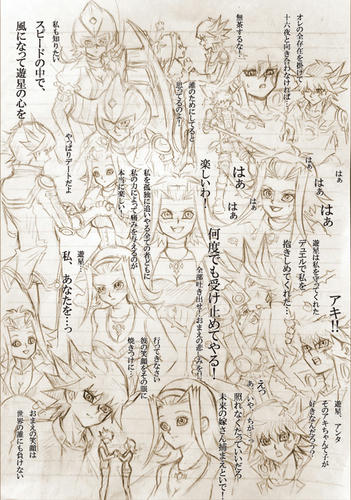 オレの全存在を掛けて、
十六夜と向き合わなければ…!
無茶するな!…
私も知りたい
スピードの中で、
風になって遊星の心を
誰のためにしてると
思ってるのよ!
はぁ
はぁ
はぁ
楽しいわ!
やっぱりデートだよ
私を孤独に追いやる全ての者どもに
私の力によって痛みを与えるのが
本当に楽しい!
遊星は私を守ってくれた
デュエルで私を
抱きしめてくれた…
アキ!!
何度でも受け止めてやる!
全部吐き出せ!おまえの悲しみを!!
遊星…
私、あなたを…っ
遊星、アンタ
そのアキちゃんて子が
好きなんだろう?
えっ
あ、いや、ちが…
照れなくたっていいだろ?
未来の嫁さん捕まえといて!
行ってきなさい
彼の笑顔をその眼に
焼きつけに…
おまえの笑顔は
世界の誰にも負けない